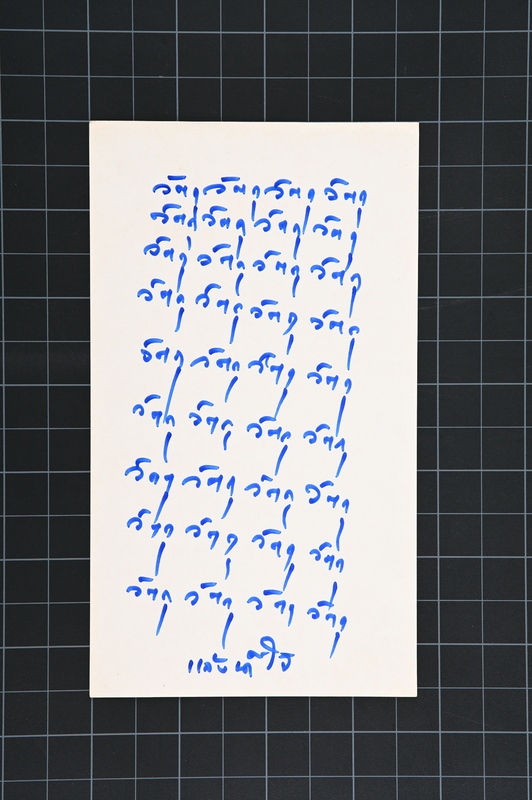 วัตถุ วัตถุ วัตถุ วัตถุ
วัตถุ วัตถุ วัตถุ วัตถุ
วัตถุ วัตถุ วัตถุ วัตถุ
วัตถุ วัตถุ วัตถุ วัตถุ
วัตถุ วัตถุ วัตถุ วัตถุ
วัตถุ วัตถุ วัตถุ วัตถุ
วัตถุ วัตถุ วัตถุ วัตถุ
วัตถุ วัตถุ วัตถุ วัตถุ
วัตถุ วัตถุ วัตถุ วัตถุ
แล้วน้ำใจ